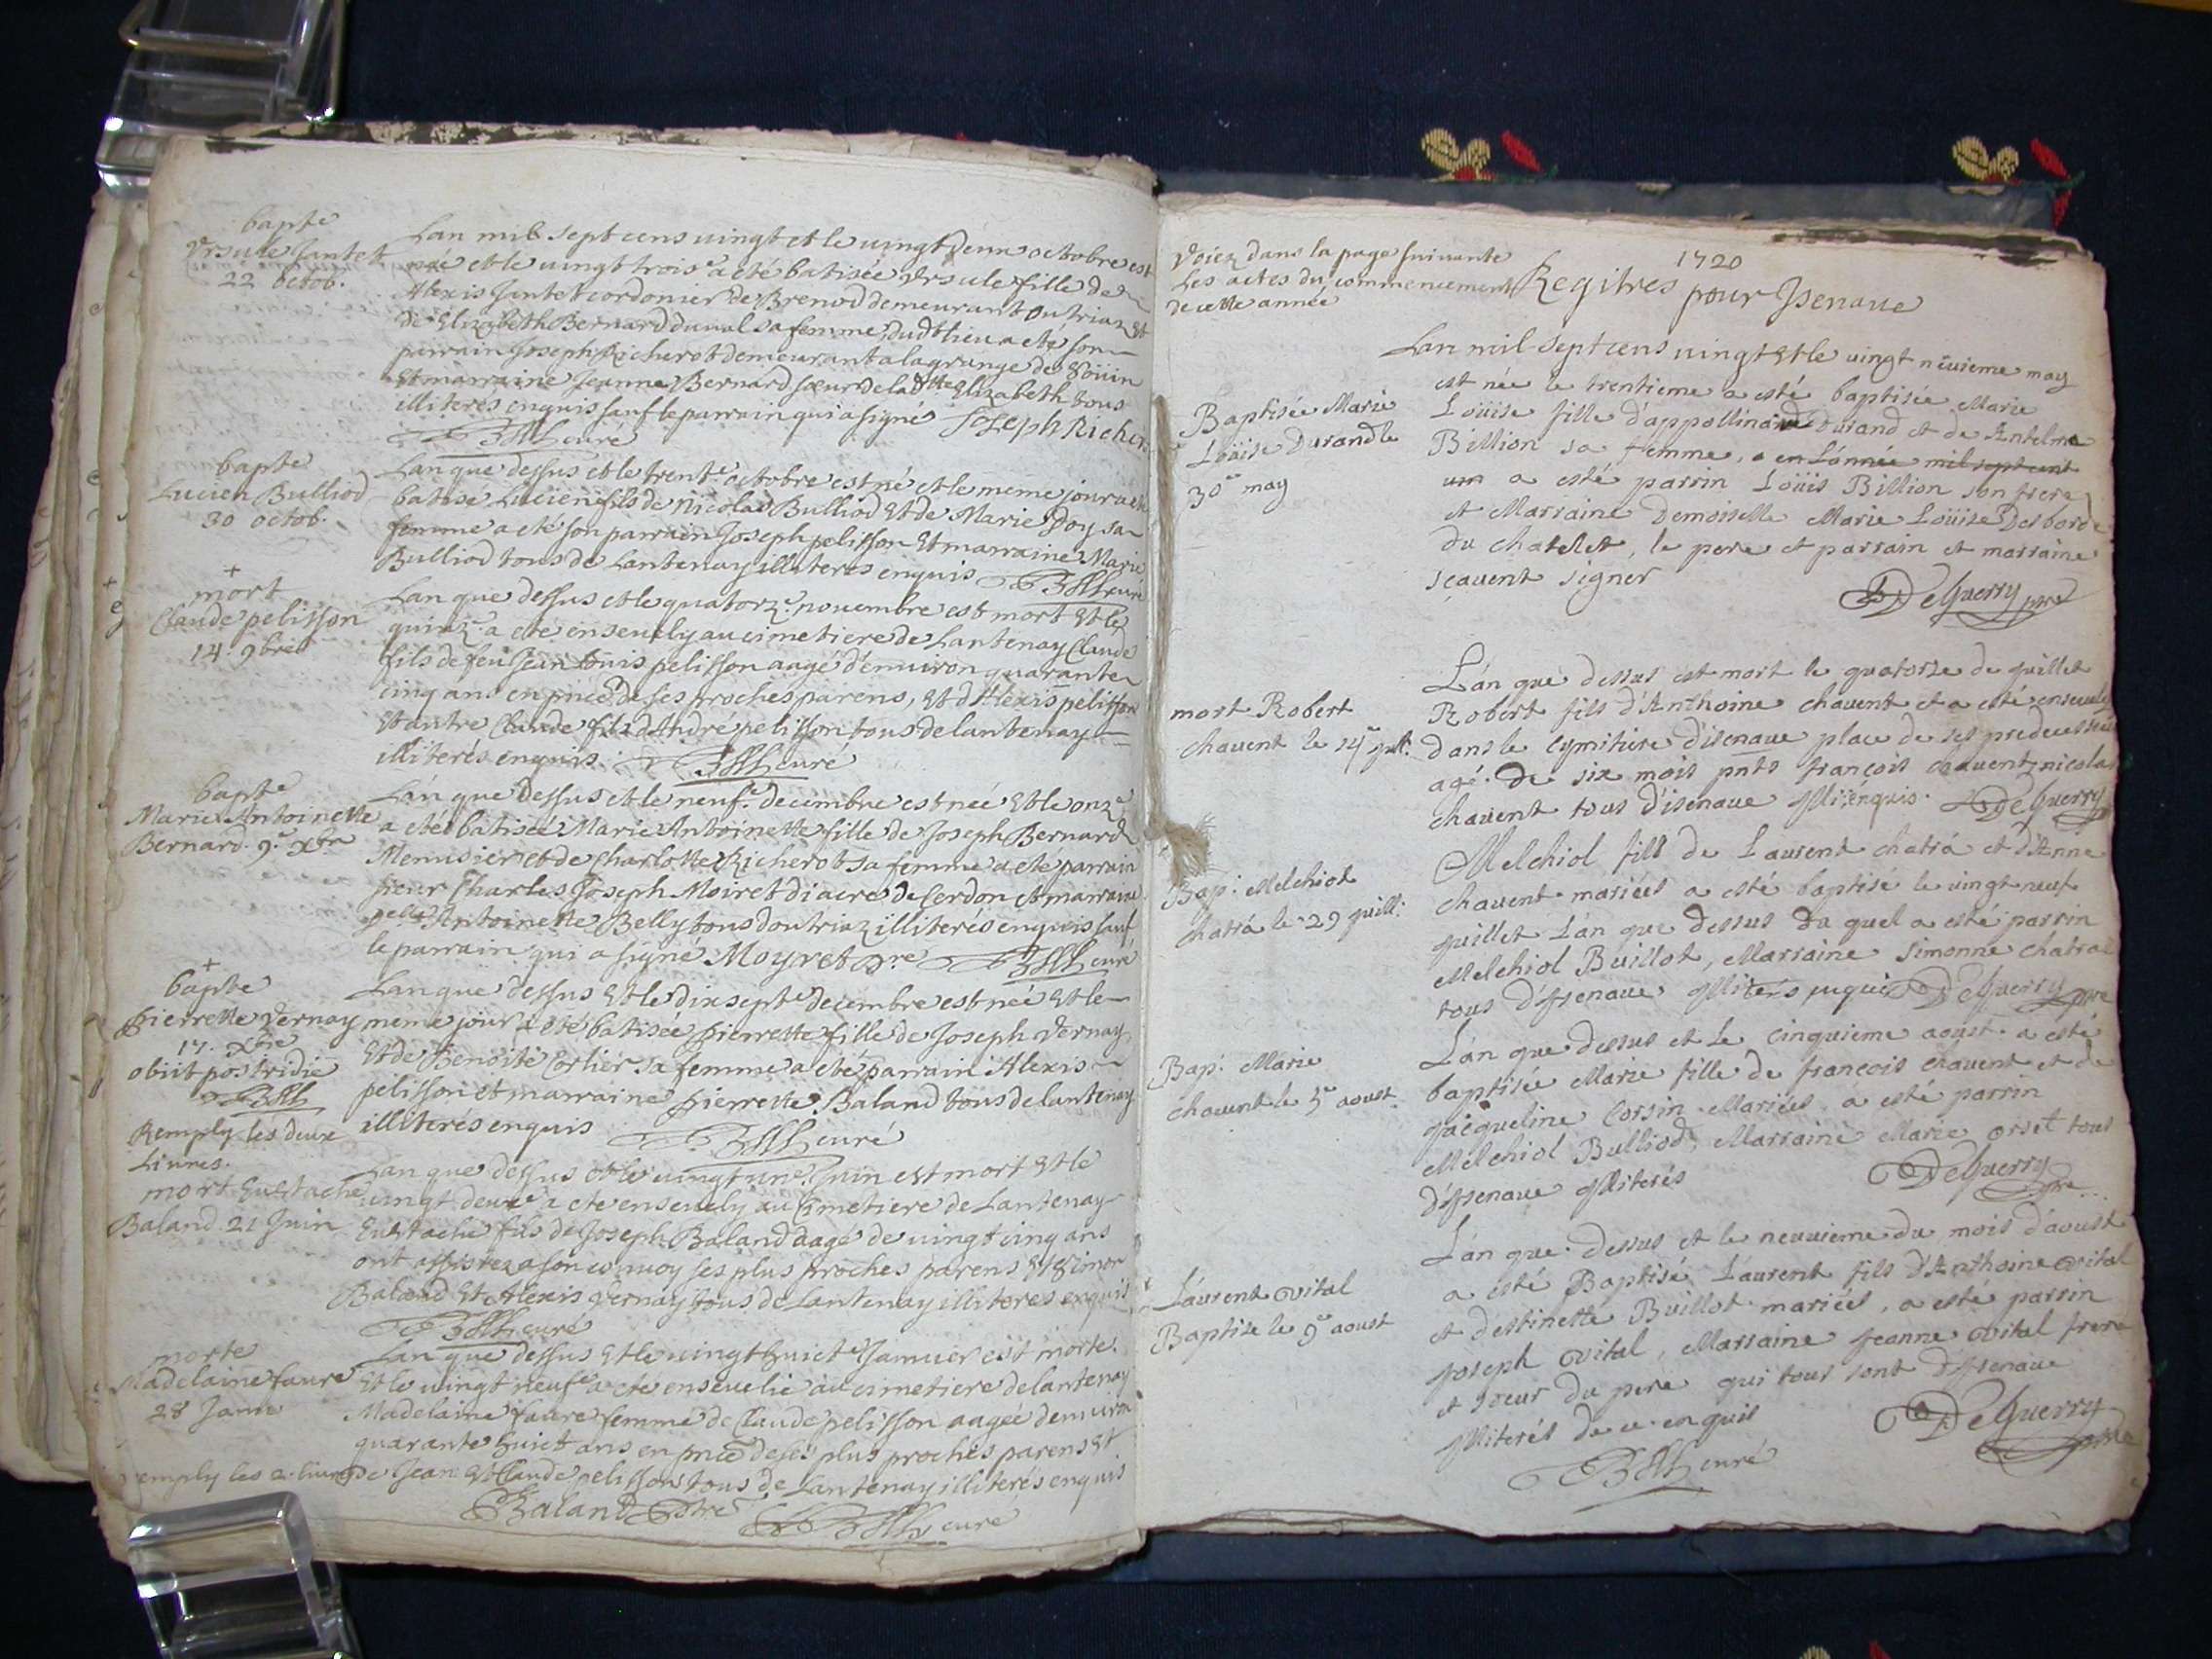 bapt.e
Ursule Jantet
22 octob.
Lan mil sept cens uingt et le uingt deux octobre est
née et le uingt trois.e a eté batisée Ursule fille de
Alexis Jantet cordonier de Brenod demeurant Outriaz Et
de Elizabeth Bernard duual sa femme, dudt lieu a eté son
parrain Joseph Richerot demeurant a la grange de
Et marraine Jeanne Bernard sœur de ladtte Elizabeth tous
illiterés enquis sauf le parrain qui a signé Joseph Richerot
curé
bapt.e
Lucien Bulliod
30 octob.
Lan que dessus et le trent.e octobre est né et le meme jour a eté
batisé Lucien fils de Nicolas Bulliod Et de Marie Goy sa
femme a eté son parrain Joseph pelisson Et marraine Marie
Bulliod tous de Lantenay illiterés enquis curé
+
mort
Claude pelisson
14. 9bre
Lan que dessus et le quatorz.e nouembre est mort Et le
quinz.e a eté enseuely au cimetiere de Lantenay Claude
fils de feu Jean Louis pelisson aagé d'enuiron quarante
cinq ans en pnce de ses proches parens, Et d'Alexis pelisson
Et autre Claude fils d'André pelisson tous de lantenay
illiterés enquis curé
bapt.e
Marie Antoinette
Bernard. 9.e Xbre
Lán que dessus et le neuf.e decembre est née Et le onz.e
a eté batisée Marie Antoinette fille de Joseph Bernard
Menusier et de Charlotte Richerot sa femme a eté parrain
sieur Charles Joseph Moiret diacre de Cerdon et marraine
Antoinette Belly tous doutriaz illiterés enquis sauf
le parrain qui a signé Moyret Dre curé
+
bapt.e
pierrette Vernay
17. Xbre
obiit postridie
Lan que dessus Et le dix sept.e decembre est née Et le
meme jour a eté batisée pierrette fille de Joseph Vernay
Et de Benoite Corlier sa femme a eté parrain Alexis
pelisson et marraine pierrette Baland tous de lantenay
illiterés enquis curé
Remply les deux
Liures.
mort Eustache
Baland 21 Juin
Lan que dessus et le uingt un.e Juin est mort Et le
uingt deux.e a eté enseuely au Cimetiere de Lantenay
Eustache fils de Joseph Baland aagé de uingt cinq ans
ont assistez a son conuoy ses plus proches parens Et Simon
Baland Et Alexis Vernay tous de Lantenay illiteres enquis
curé
morte
Madelaine faure
28 Janu
Lan que dessus Et le uingt huict.e Januier est morte
Et le uingt neuf.e a eté enseuelie au cimetiere de lantenay
Madelaine faure femme de Claude pelisson aagée denuiron
quarante huict ans en pnce de ses plus proches parens Et
remply les 2. liures
de Jean Et Claude pelisson tous de Lantenay illiterés enquis
Baland Ptre curé
Voiez dans la page suiuante
Les actes du commencement
de cette année
1720
Regitres pour Jsenaue
Baptisée Marie
Loüise Durand le
30e may
Lan mil sept cens uingt Et le uingt neuieme may
est née le trentieme a esté baptisée Marie
Loüise fille d'appollinard Durand et de Antelma
Billion sa femme, a en L'année mil sept cent
un a esté parrin Loüis Billion son frere
et Marraine Demoiselle Marie Loüise Desborde
du chatelet, le pere et parrain et marraine
sçauent signer DeGuerry pre
mort Robert
chauent le 14e jull.
Lán que dessus est mort le quatorze de juillet
Robert fils d'Anthoine chauent et a esté enseuely
dans le cymitiere d'isenaue place de ses predecesseurs
agé de six mois pnts françois chauent, nicolas
chauent tous d'isenaue enquis. DeGuerry
Bap: Melchiol
chatrá le 29 juill:
Melchiol fils de Laurent chatrá et d'Anne
chauent mariées a esté baptisé le uingt neuf
juillet Lán que dessus du quel a esté parrin
Melchiol Buillot, Marraine Simonne chatra
tous d'Jsenaue Jlliterés DeGuerry pre
Bap: Marie
chauent le 5e aoust
Lán que dessus et Le cinquieme aoust a esté
baptisée Marie fille de françois chauent et de
jacqueline Corsin Mariées a esté parrin
Melchiol Bulliod, Marraine Marie orset tous
d'Jsenaue Jlliterés DeGuerry pre
Láurent Vital
Baptize le 9e aoust
Lán que dessus et le neuuieme du mois d'aoust
a esté Baptisé Láurent fils d'Anthoine Vital
et d'estinette Buillot mariées, a esté parrin
Joseph Vital, Marraine Jeanne Vital frere
et soeur du pere qui tous sont d'Jsenaue
Jlliterés de ce enquis DeGuerry pre
curé